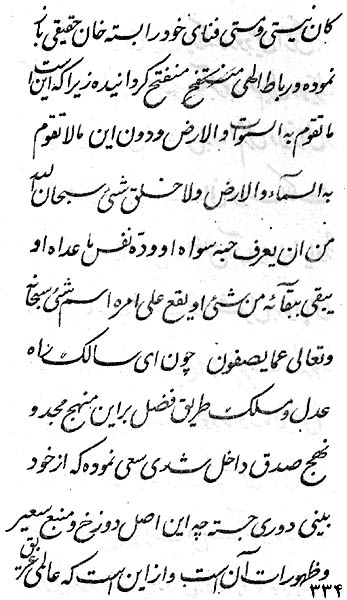 کان نیستی و مستی فنای خود را بسته خان حقیقی باز
نموده و رباط الهی مستفتح منفتح کردانیده زیرا که این است
ما تقوم به السموات و الارض و دون این ما لا تقوم
به السمآء و الارض ولا خلق شئ سبحان الله
من ان یعرف حبه سواه او وده نفس ما عداه او
یبقی ببقآئه من شئ او یقع علی امره اسم شئ سبحانه
و تعالی عما یصفون چون ای سالک راه
عدل و مسلک طریق فضل بر این منهج مجد و
نهج صدق داخل شدی سعی نموده که از خود
بینی دوری جسته چه این اصل دوزخ و منبع سعیر
و ظهورات آن است و از این است که عالمی غریق
۳۳۴